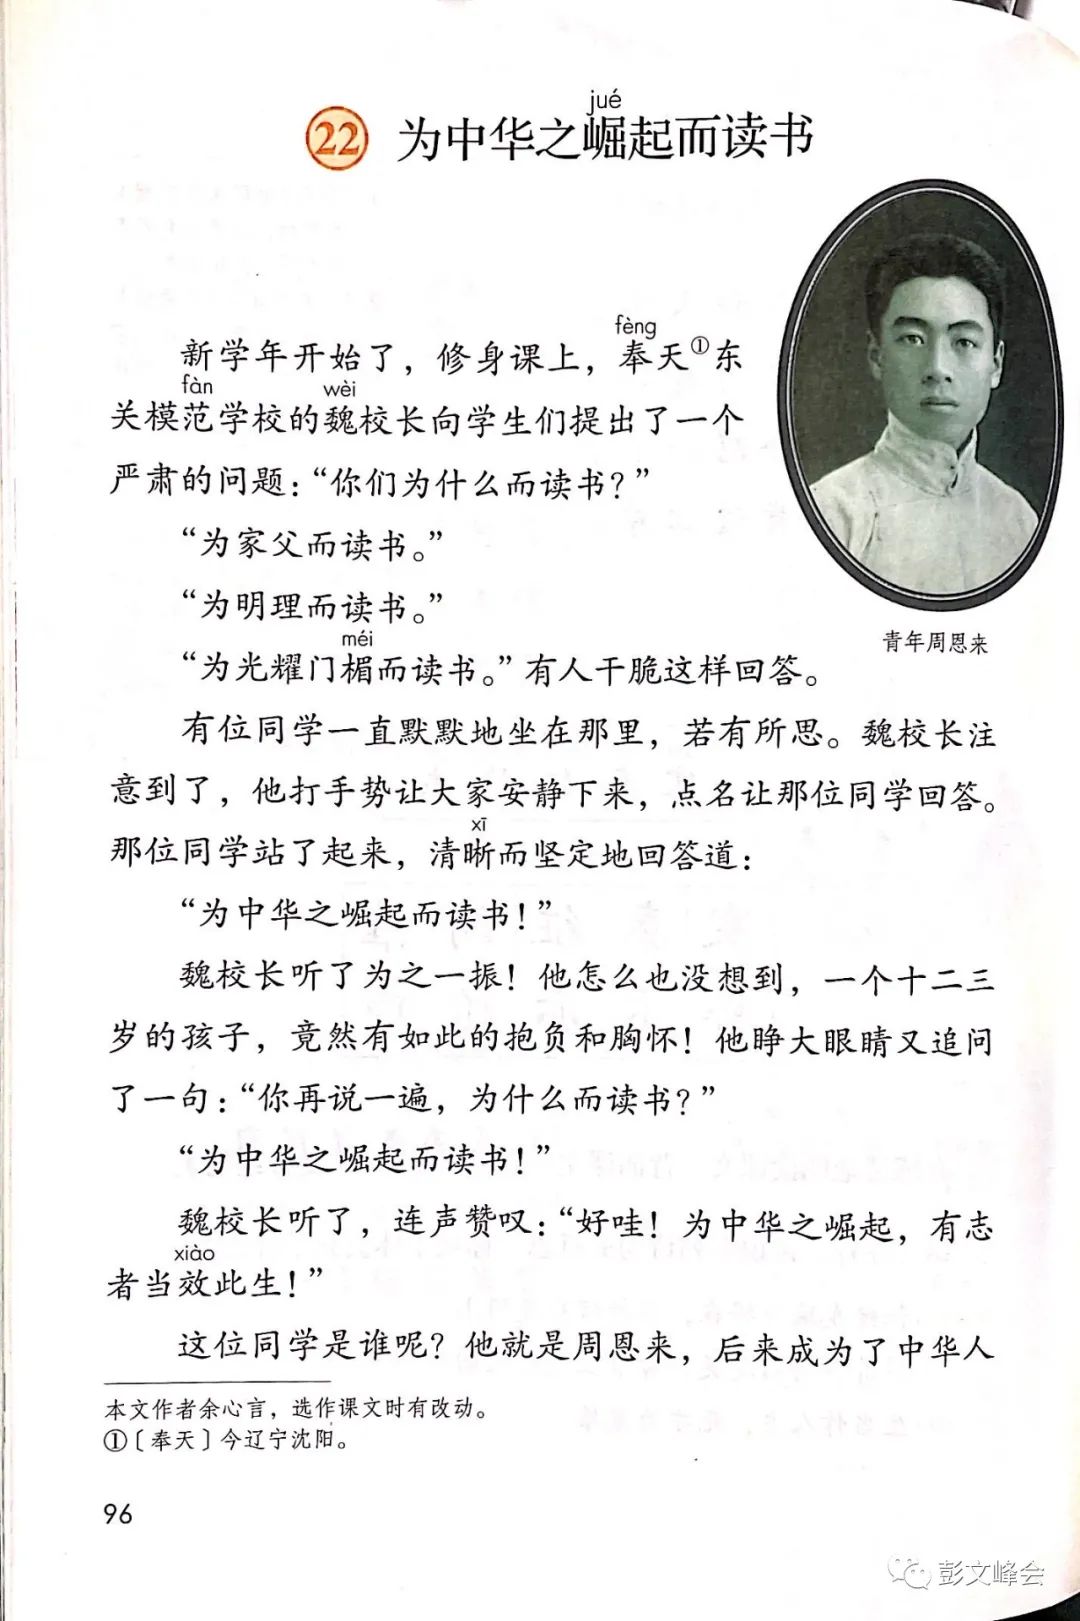 jué
22 为中华之崛起而读书
fèng
新学年开始了，修身课上，奉天①东
fàn wèi
关模范学校的魏校长向学生们提出了一个
严肃的问题：“你们为什么而读书？”
“为家父而读书。”
“为明理而读书。”
méi
“为光耀门楣而读书。”有人干脆这样回答。
青年周恩来
有位同学一直默默地坐在那里，若有所思。魏校长注
意到了，他打手势让大家安静下来，点名让那位同学回答。
xī
那位同学站了起来，清晰而坚定地回答道：
“为中华之崛起而读书！”
魏校长听了为之一振！他怎么也没想到，一个十二三
岁的孩子，竟然有如此的抱负和胸怀！他睁大眼睛又追问
了一句：“你再说一遍，为什么而读书？”
“为中华之崛起而读书！”
魏校长听了，连声赞叹：“好哇！为中华之崛起，有志
xiào
者当效此生！”
这位同学是谁呢？他就是周恩来，后来成为了中华人
本文作者余心言，选作课文时有改动。
①〔奉天〕今辽宁沈阳。
96
彭文峰会